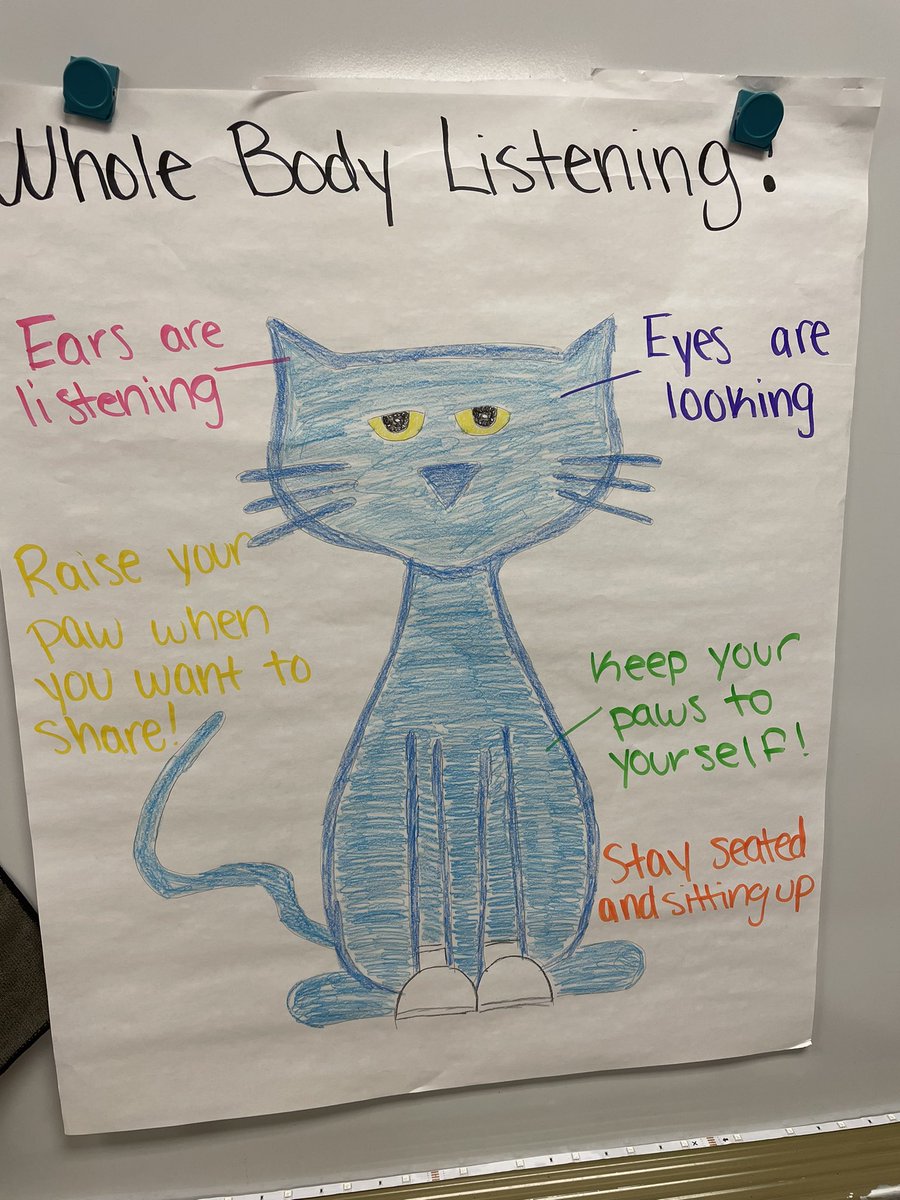 Whole Body Listening.
Ears are
listening
Eyes are
looking
Raise your
paw when
you want to
share!
Keep your
paws to
yourself!
Stay seated
and sitting up